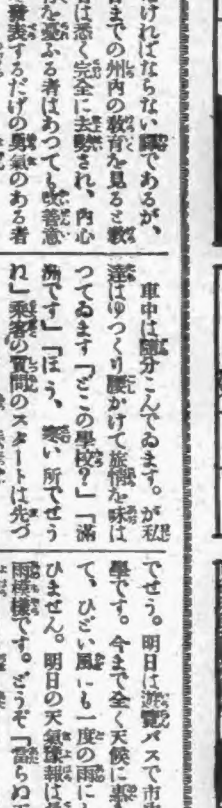 ければならない譯であるが、
までの州内の敎育を見ると敎
は悉く完全に去勢され、内心
を憂ふる者はあつても改善意
發表するだけの勇氣のある者
車中は隨分こんでゐます。が私
達はゆつくり腰かけて旅情を味は
つてゐます「どこの學校?」「滿
洲です」「ほう、寒い所でせう
れ」乘客の質問のスタートは先づ
でせう。明日は遊覽バスで市
學です。今まで全く天候に惠
て、ひどい風にも一度の雨にも
ひません。明日の天氣豫報は
雨模樣です。どうぞ「當らぬ天